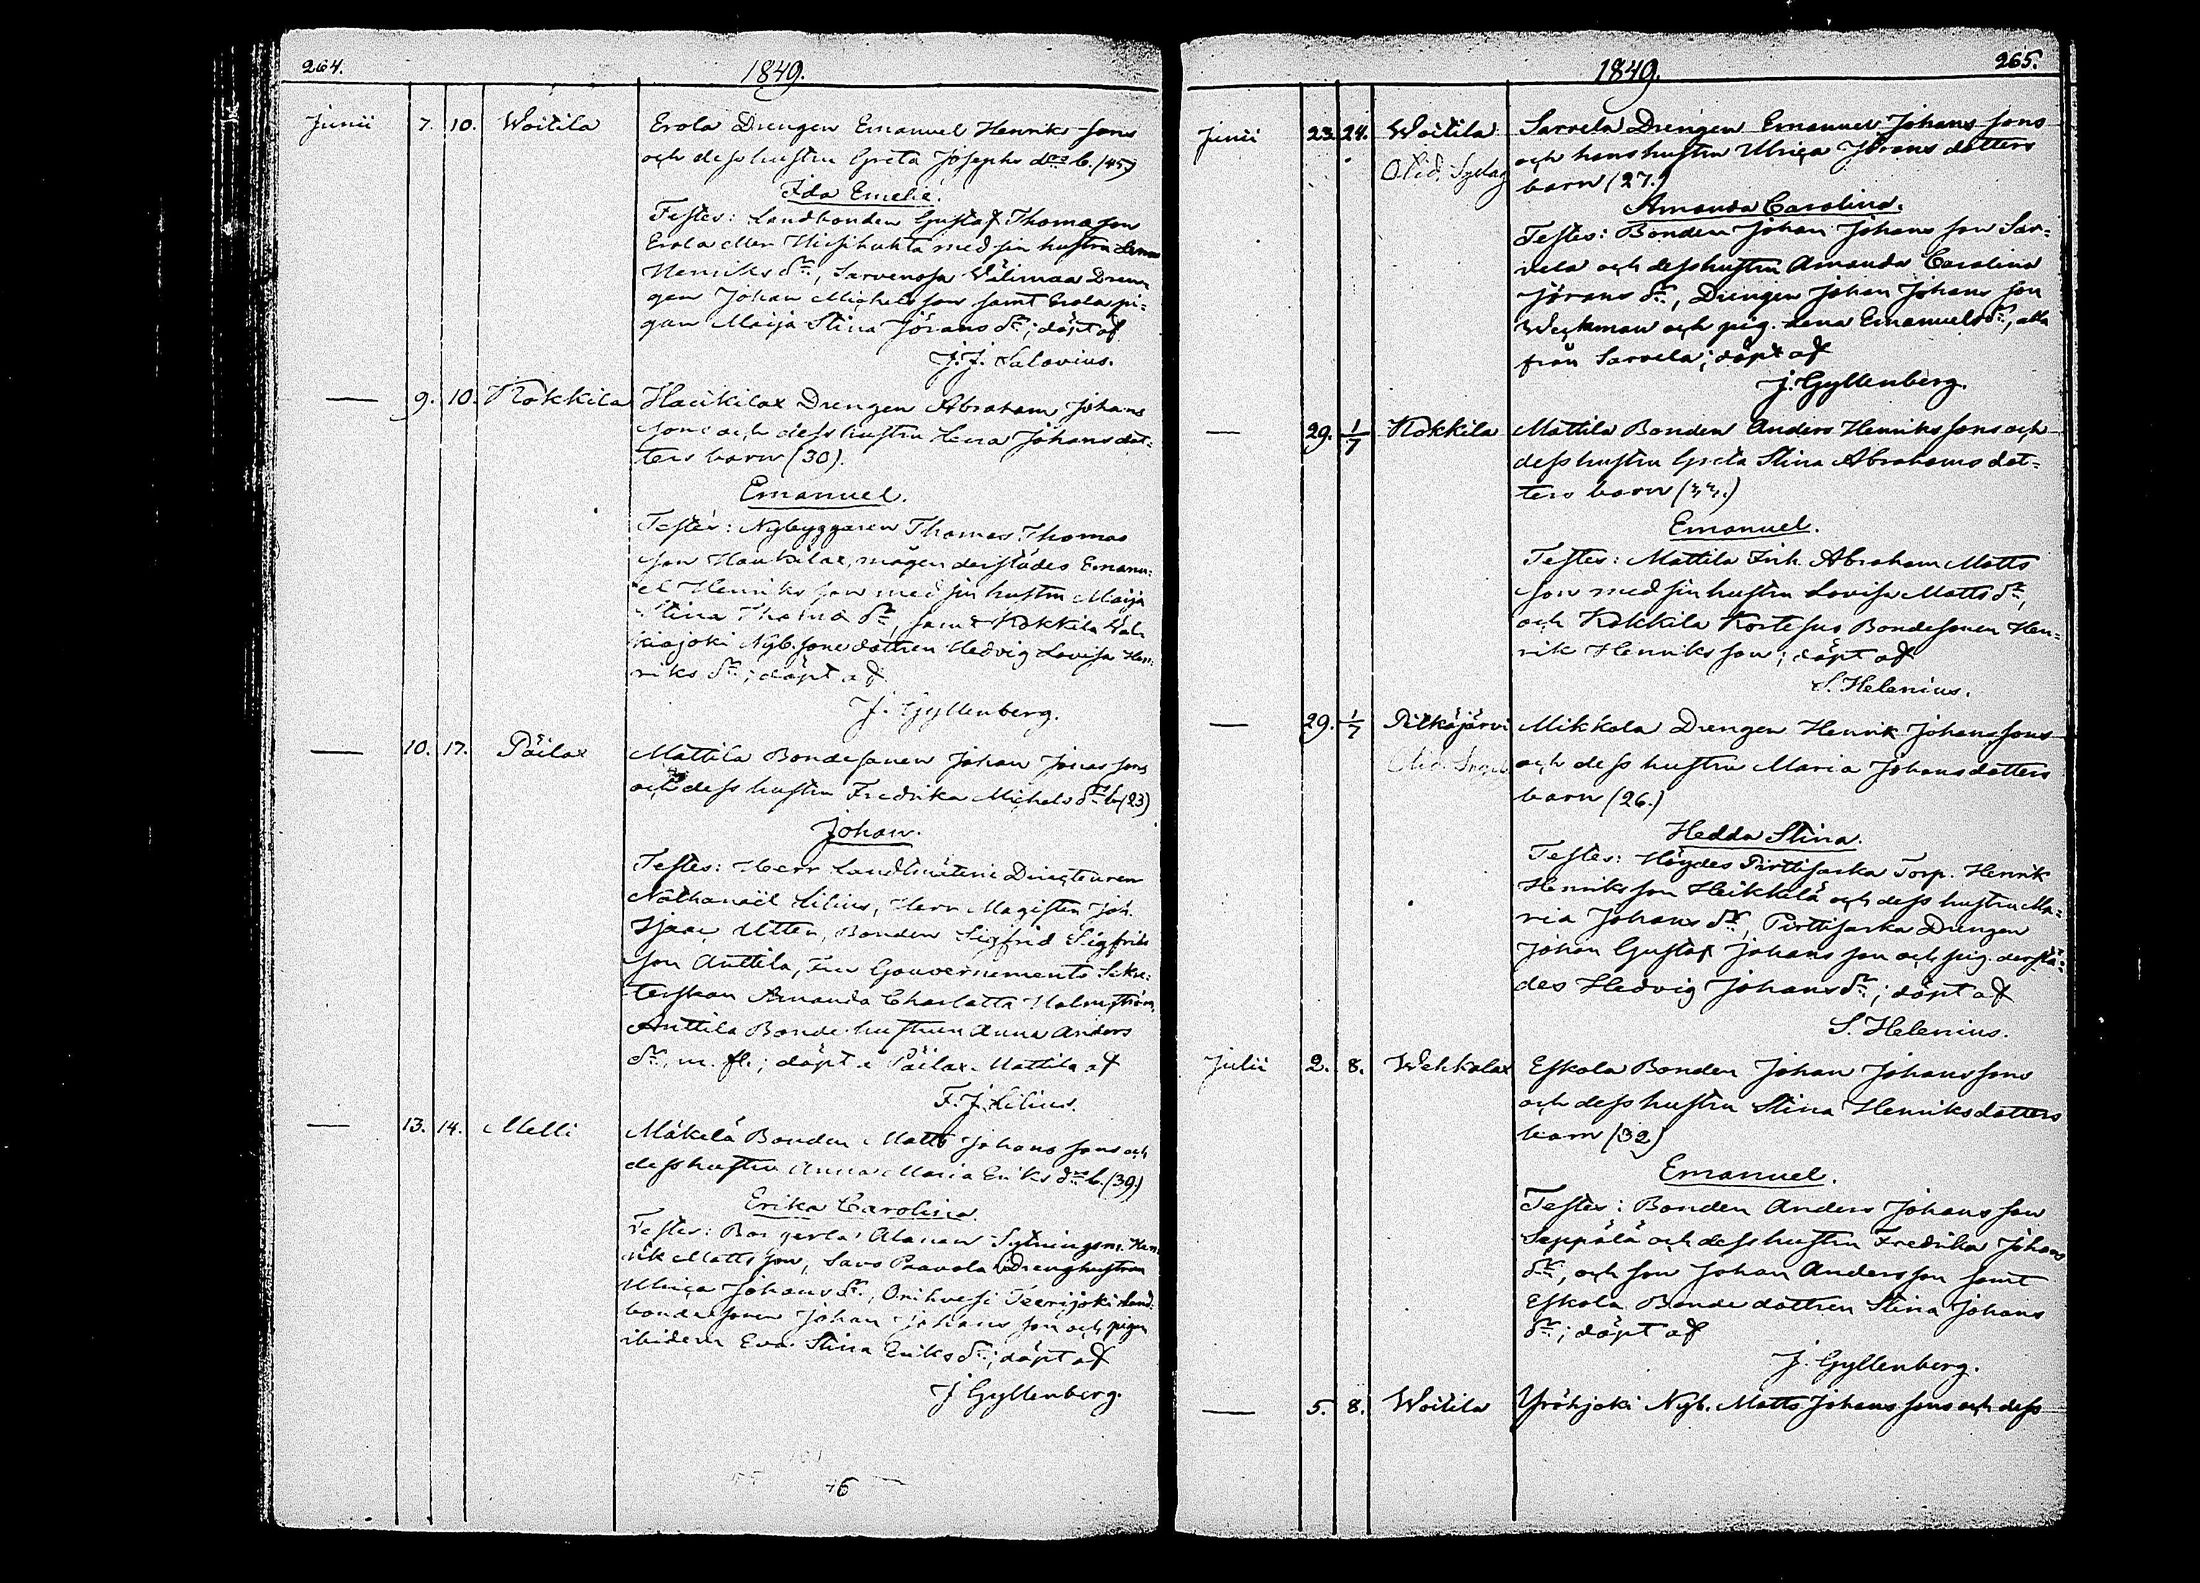 264.
1849.
Junii 7. 10. Woitila Erola Drengen Emanuel Henriks sons
och dess hustru Greta Josephs drs b. (45)
Ida Emelie.
Testes: Landbonden Gustaf Thomasson
Erola eller Hirsihuhta med sin hustru Lena
Henriks dr, Sarvenoja Wälimaa Dren
gen Johan Michelsson samt Erola pi=
gan Maija Stina Jörans dr; döpt af
J. J. Salovius.
— 9. 10. Kokkila Haukilax Drengen Abraham Johans
sons och dess hustru Lena Johans dot=
ters barn (30).
Emanuel.
Testes: Nybyggaren Thomas Thomas
son Haukilax, mågen derstädes Emanu=
el Henriks son med sin hustru Maija
Stina Thomæ dr, samt Kokkila
kiajoki Nyb. sone dottren Hedvig Lovisa Hen=
riks dr; döpt af
J. Gyllenberg.
— 10. 17. Päilax Mattila Bondesonen Johan Jonas sons
och dess hustru Fredrika Michels drs b. (23)
Johan.
Testes: Herr Landtmäteri Directeuren
Nathanaël Lilius, Herr Magistern Joh.
Isaac Utter, Bonden Sigfrid Sigfrids
son Anttila, Fru Gouvernements Sekre=
terskan Amanda Charlotta Holmström,
Anttila Bonde hustrun Anna Anders
dr, m. fl.; döpt i Päilax Mattila af
F. J. Lilius.
— 13. 14. Melli Mäkelä Bonden Matts Johans sons och
dess hustru Anna Maria Eriks drs b. (39.)
Erika Carolina.
Testes: Alanen Sytningsm. Hen=
rik Matts son, Savo Paavola Drenghustrun
Ulrica Johans dr, Orihvesi Teerijoki Land=
bonde sonen Johan Johans son och pigan
ibidem Eva Stina Eriks dr; döpt af
J Gyllenberg.
76
1849.
265.
Junii 23. 24. Woitila Sarvela Drengen Emanuel Johans sons
och hans hustru Ulrica Jörans dotters
barn (27.)
Amanda Carolina.
Testes: Bonden Johan Johans son Sar=
vela och dess hustru Amanda Carolina
Jörans dr, Drengen Johan Johans son
Weckman och pig. Lena Emanuels dr, alla
från Sarvela; döpt af
J. Gyllenberg.
— 29. 1/7 Kokkila Mattila Bonden Anders Henriks sons och
dess hustru Greta Stina Abrahams dot=
ters barn (33.)
Emanuel.
Testes: Mattila Inh. Abraham Matts
son med sin hustru Lovisa Matts dr,
och Kokkila Kortesuo Bondesonen Hen=
rik Henriks son; döpt af
S. Helenius.
— 29. 1/7 Pitkäjärvi Mikkola Drengen Henrik Johans sons
och dess hustru Maria Johans dotters
barn (26.)
Hedda Stina.
Testes: Höydes Pirttisarka Torp. Henrik
Henriksson Heikkilä och dess hustru Ma=
ria Johans dr, Pirttisarka Drengen
Johan Gustaf Johans son och pig. derstä=
des Hedvig Johans dr; döpt af
S. Helenius.
Julii 2. 8. Wehkalax Eskola Bonden Johan Johans sons
och dess hustru Stina Henriks dotters
barn (32)
Emanuel.
Testes: Bonden Anders Johans son
Seppälä och dess hustru Fredrika Johans
dr, och son Johan Andersson samt
Eskola Bonde dottren Stina Johans
dr; döpt af
J. Gyllenberg.
— 5. 8. Woitila Yröhjoki Nyb. Matts Johans sons och dess